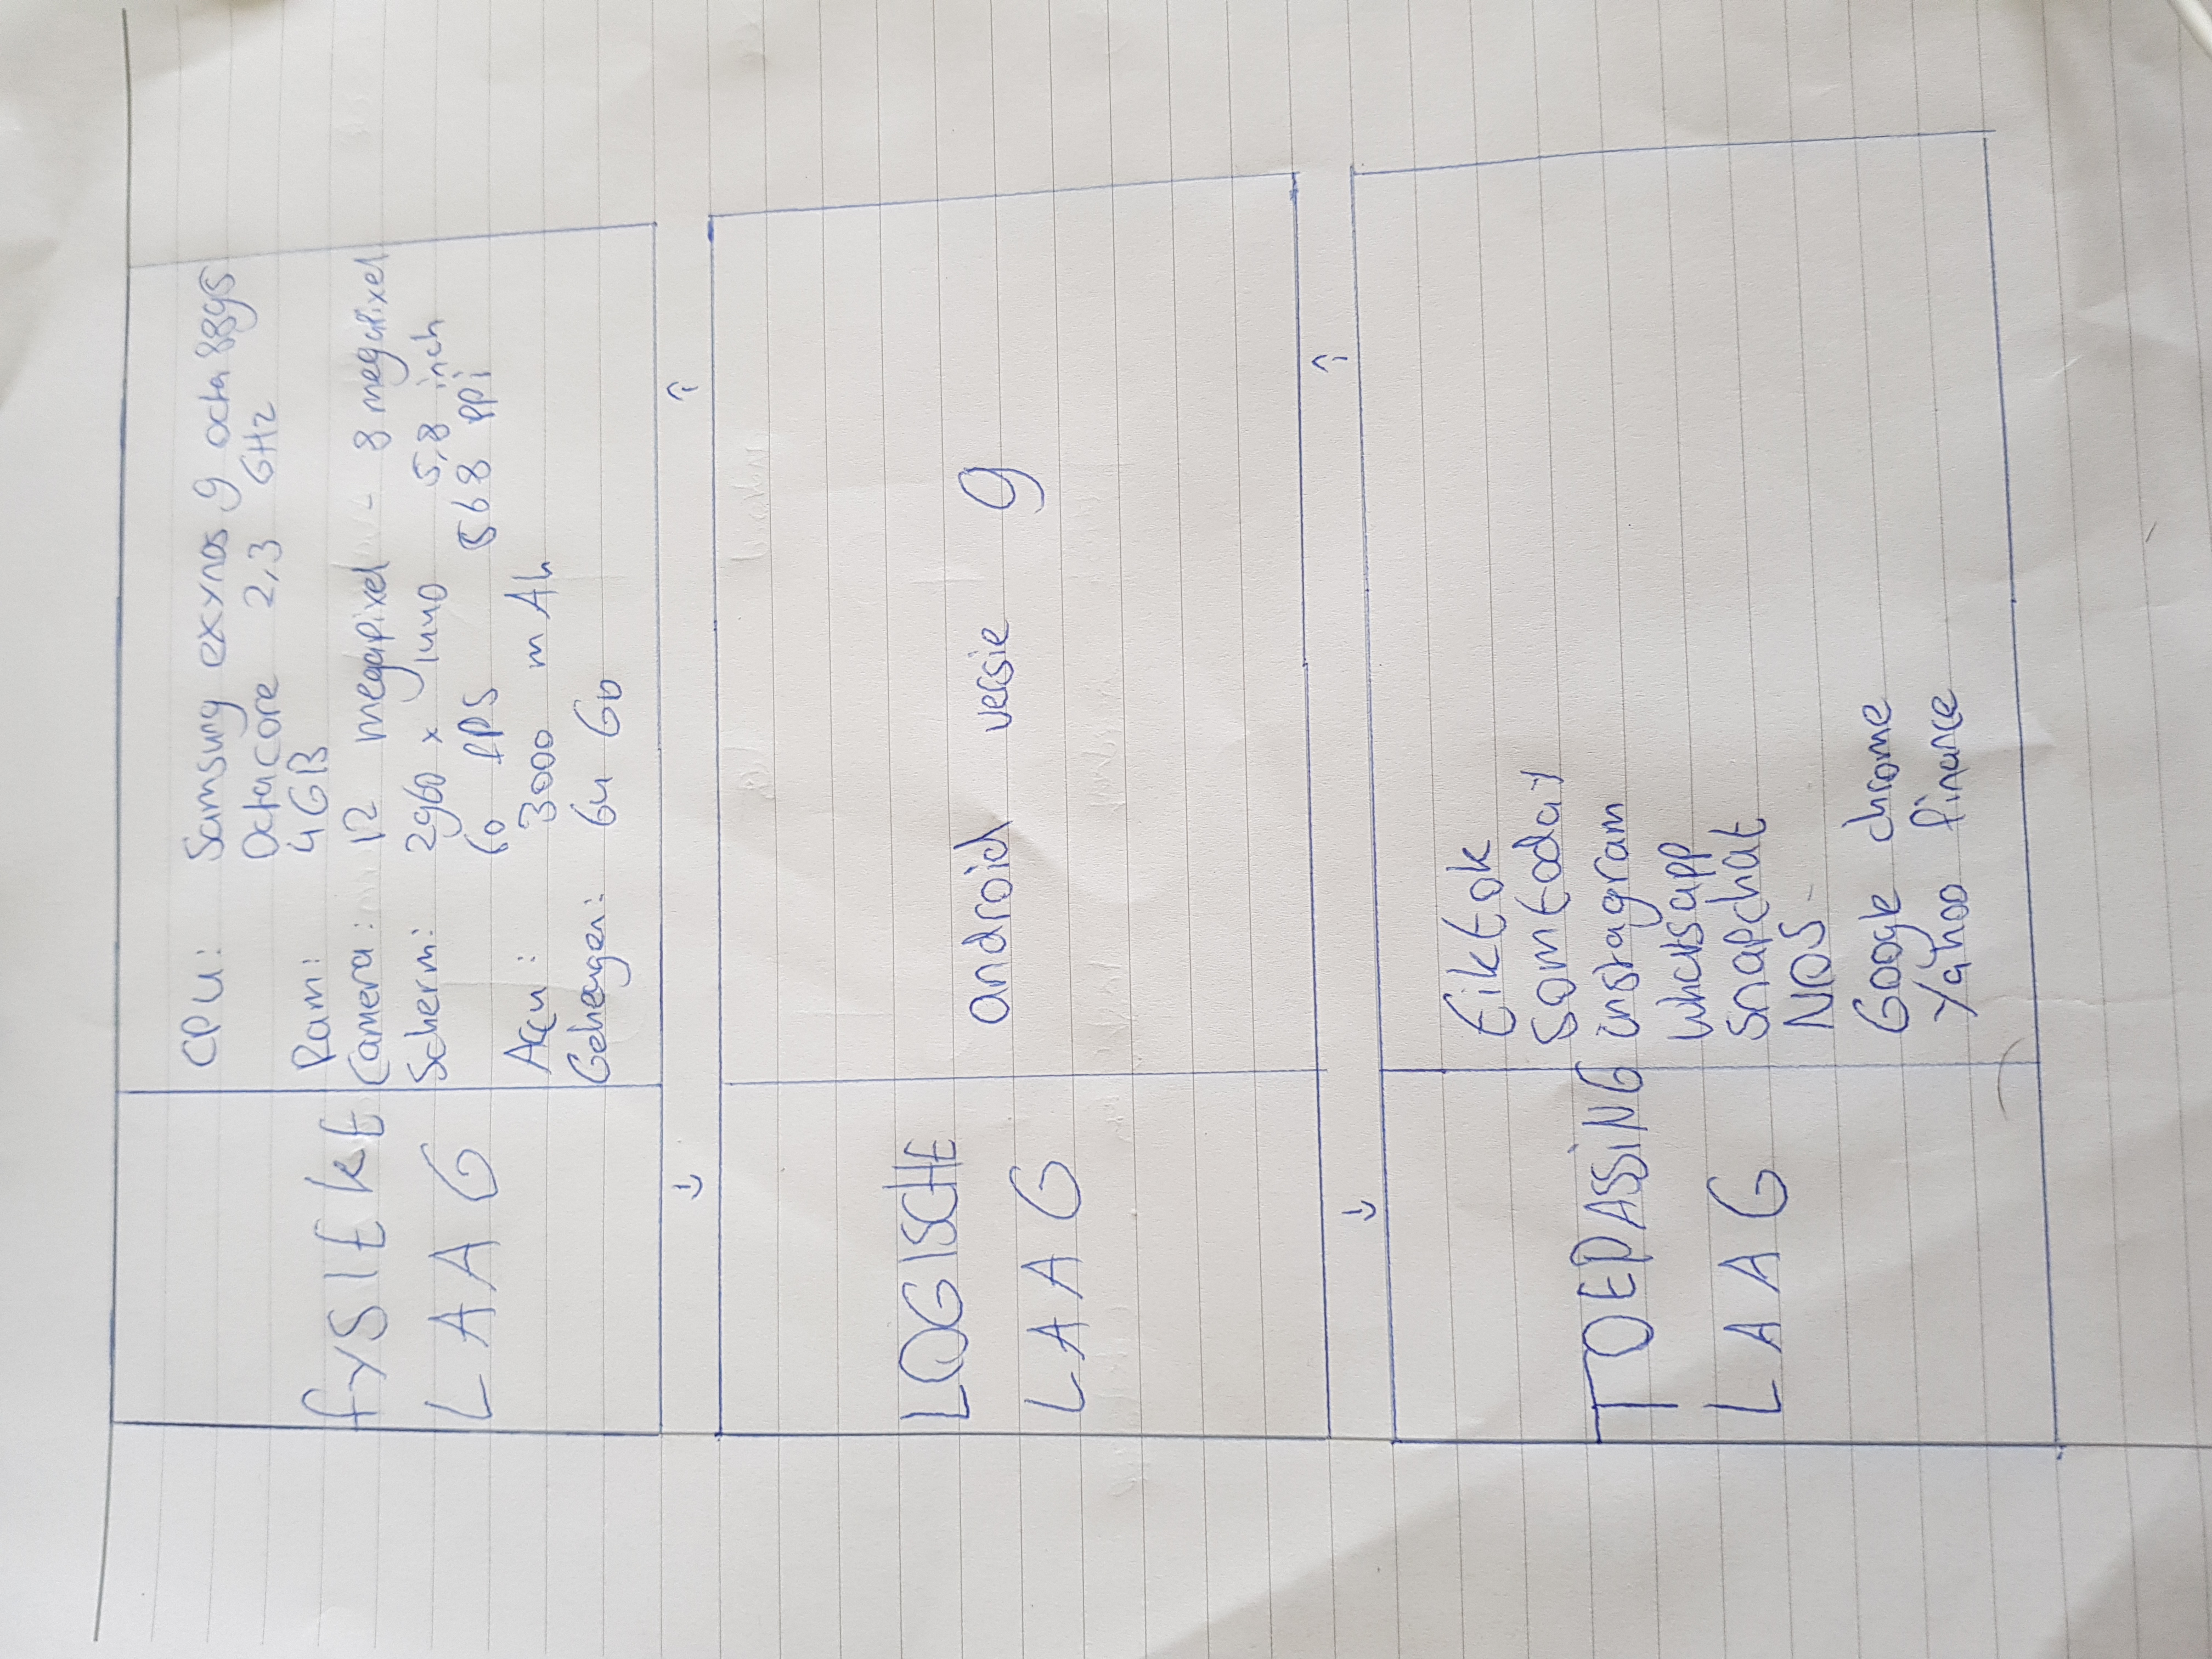 fysieke
LAAG
CPU: Samsung exynos 9 octa 8895
Octacore 2,3 GHz
Ram: 4GB
Camera: 12 megapixel - 8 megapixel
Scherm: 2960 x 1440 5,8 inch
60 fps 568 ppi
Accu: 3000 mAh
Geheugen: 64 Gb
↓ ↑
LOGISCHE
LAAG
android versie 9
↓ ↑
TOEPASSiNG
LAAG
tiktok
somtoday
instagram
whatsapp
snapchat
NOS
Google chrome
Yahoo finance